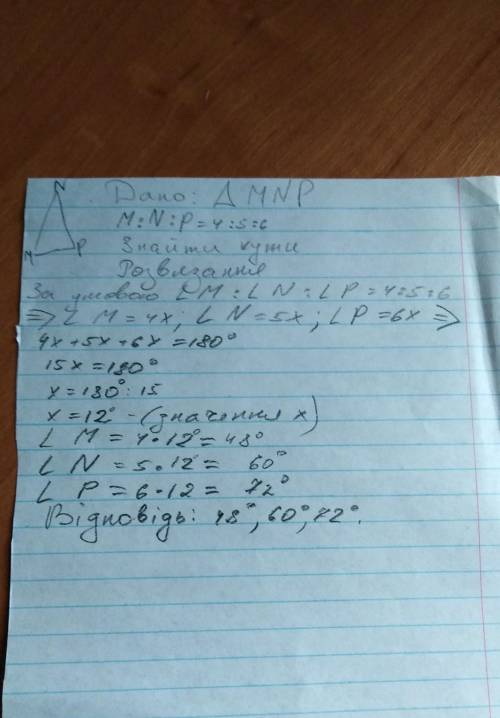 N
Дано: △ MNP
M:N:P = 4:5:6
M P
Знайти кути
Розвязання
За умовою ∠M:∠N:∠P=4:5:6
⇒ ∠M=4x; ∠N=5x; ∠P=6x ⇒
4x+5x+6x=180°
15x=180°
x=180°:15
x=12° - (значення x)
∠M = 4·12°=48°
∠N = 5·12°= 60°
∠P = 6·12 = 72°
Відповідь: 48°, 60°, 72°.